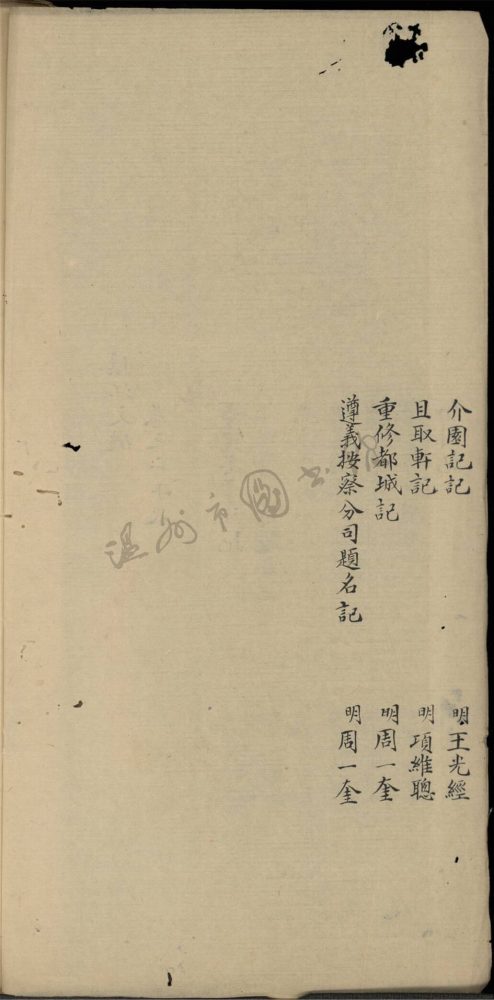 介園記記 明王光經
且取軒記 明項維聰
重修都城記 明周一奎
遵義按察分司題名記 明周一奎
溫州市圖书馆